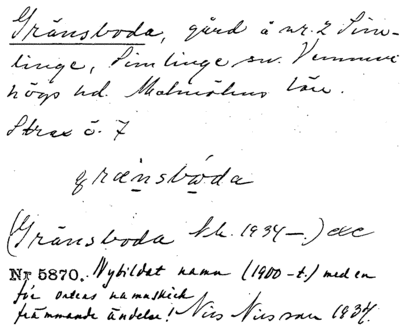 Gränsboda, gård å nr. 2 Sim-
linge, Simlinge sn. Vemmen-
högs hd. Malmöhus län.
Strax ö. 7
grænsbóda
(Gränsboda 1934-.)
Nr 5870. Nybildat namn (1900-t.) med en
för ortens namnskick
främmande ändelse! Nils Nilsson 1934.